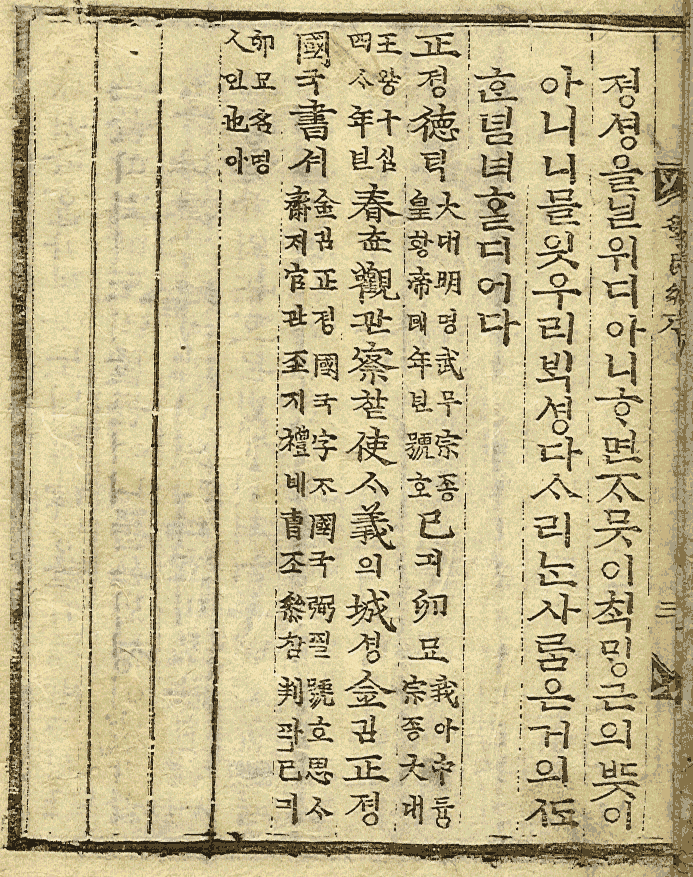 졍셩을닐위디아니ᄒᆞ면ᄌᆞ믓이ᄎᆡᆨᄆᆡᆼ근의ᄠᅳᆺ이
아니니믈읫우리ᄇᆡᆨ셩다ᄉᆞ리ᄂᆞᆫ사ᄅᆞᆷ은거의ᄯᅩ
ᄒᆞᆫ념녀홀디어다
正졍德덕大대明명武무宗종皇황帝뎨年년號호己긔卯묘我아中듕宗종大대
王왕十십四ᄉᆞ年년春츈觀관察찰使ᄉᆞ義의城셩金김正졍
國국書셔金김正졍國국字ᄌᆞ國국弼필號호思ᄉᆞ齋ᄌᆡ官관至지禮녜曹조參참判판己긔
卯묘名명人인也야